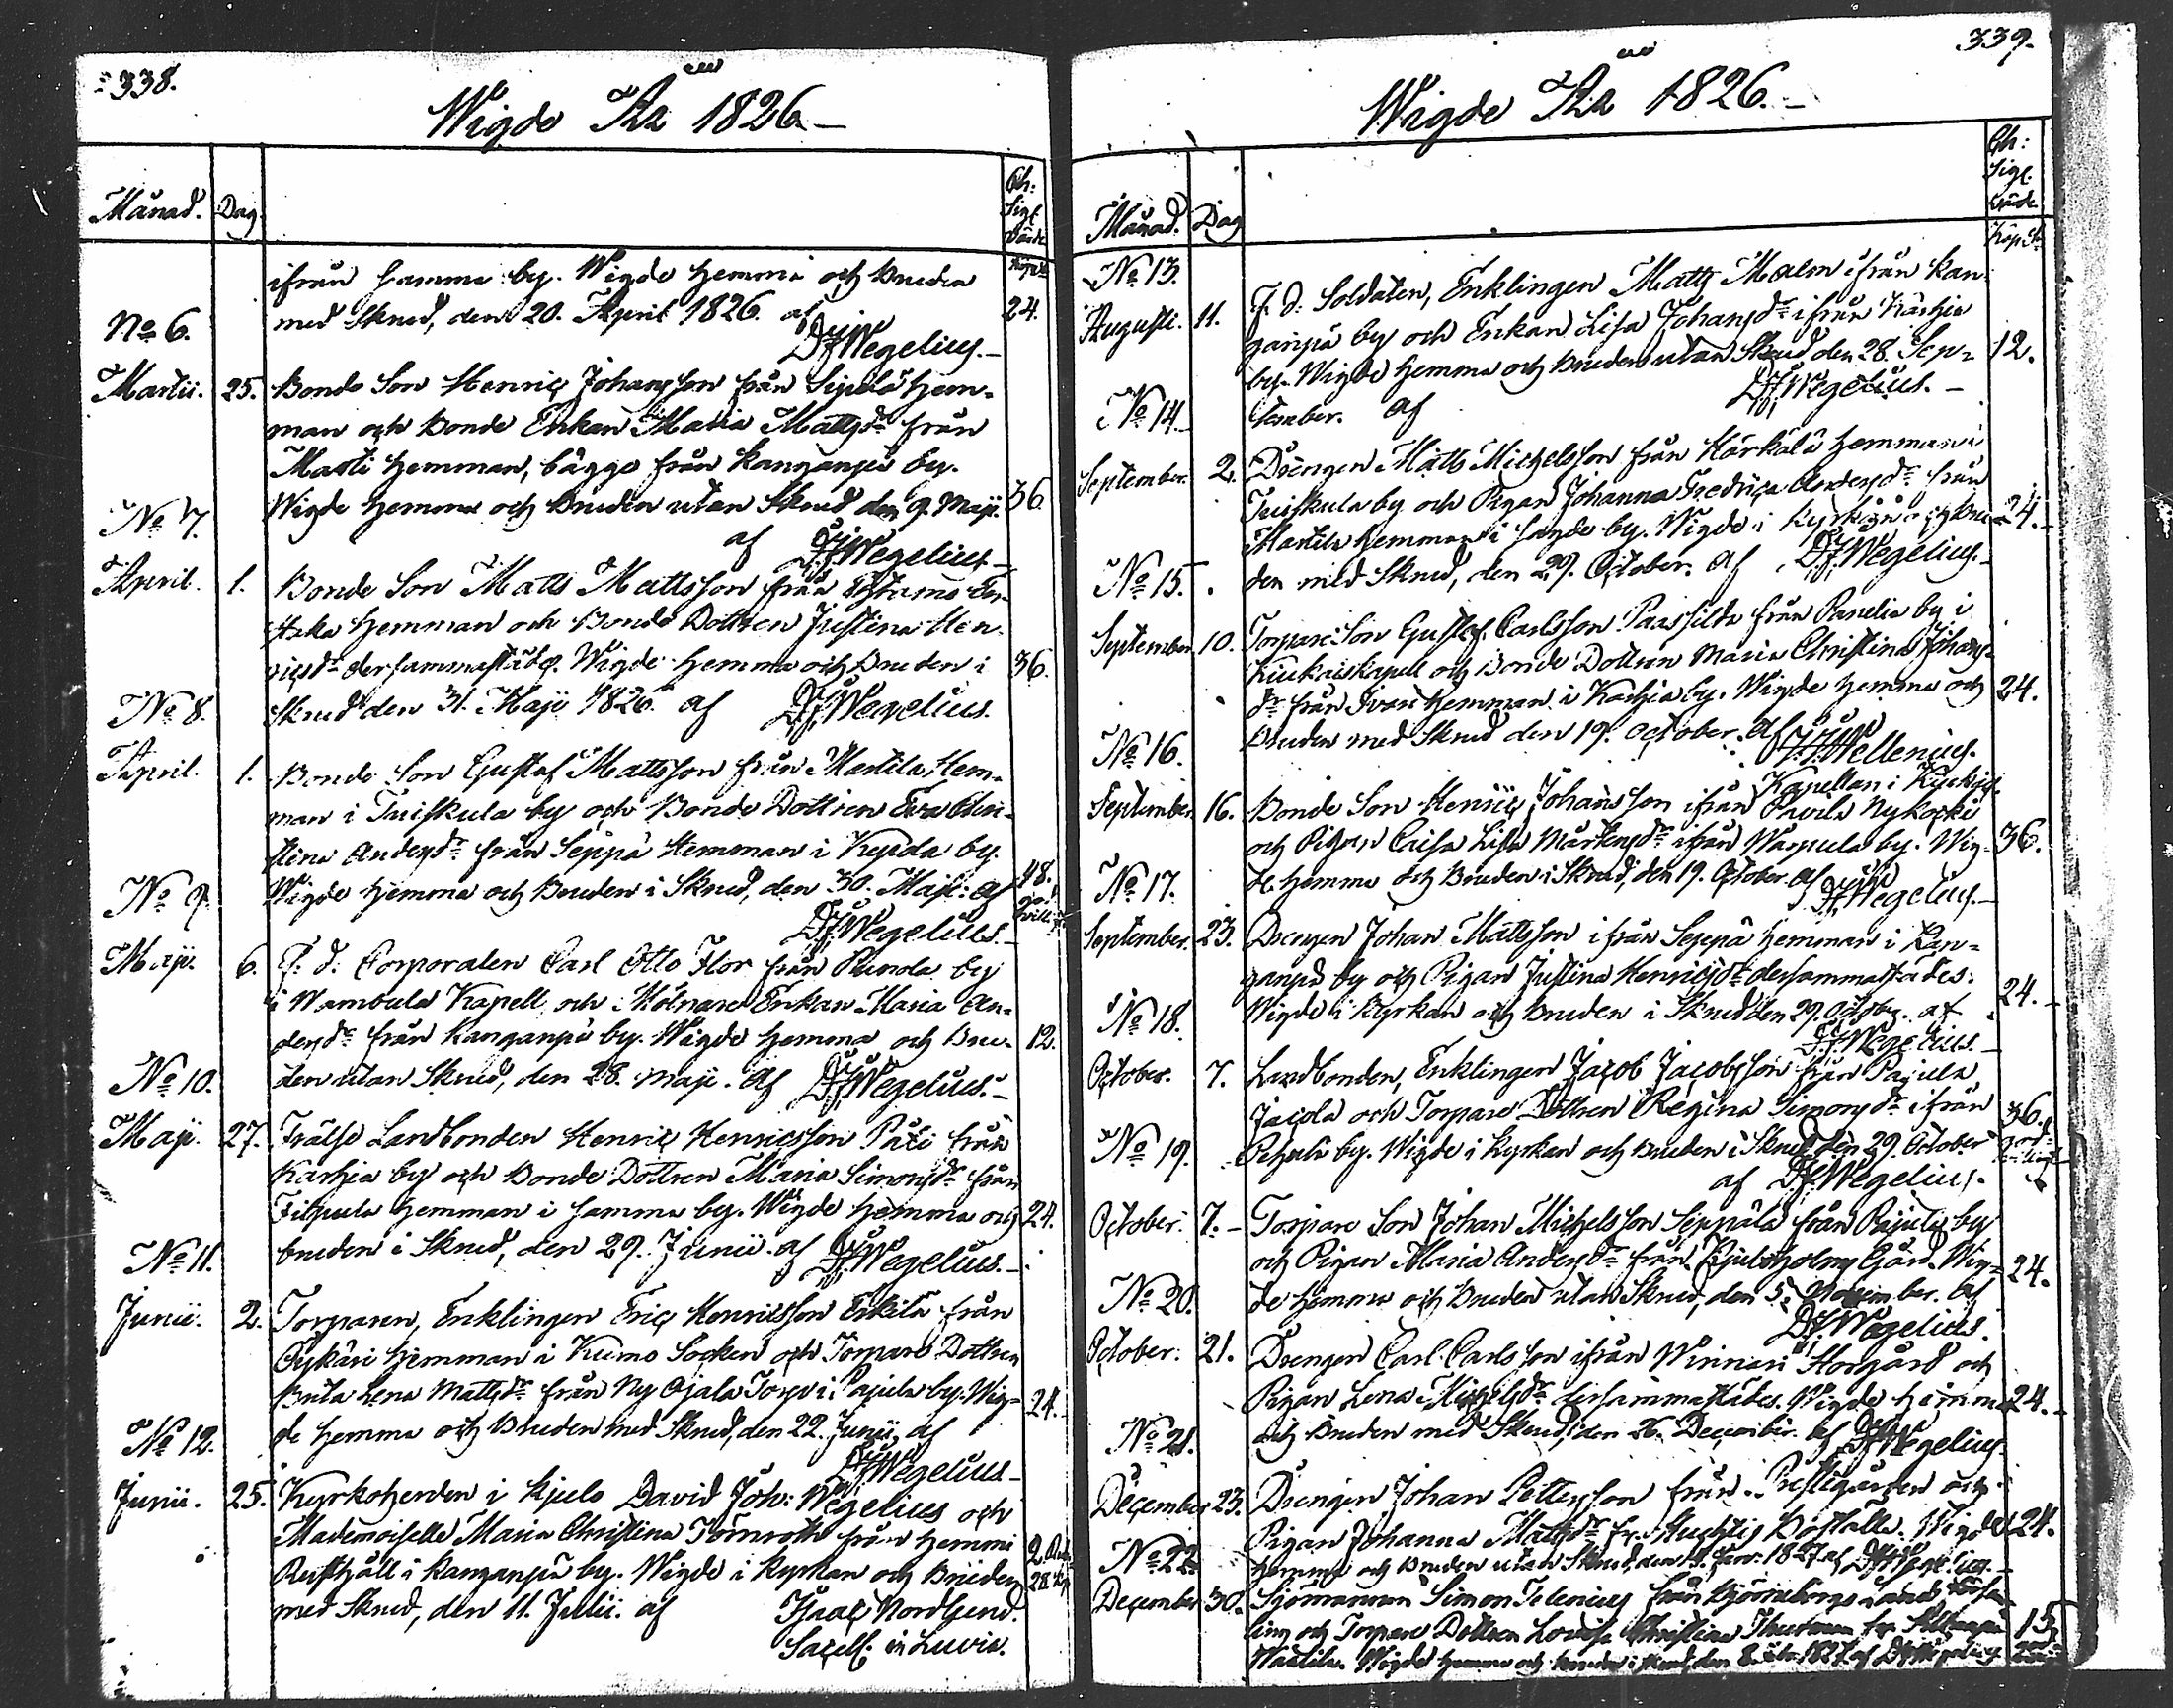 338.
Wigde År 1826.
Månad. Dag.
Ch: Sigl. värde
ifrån samma by. Wigde hemma och Bruden
med Skrud, den 20. April 1826. af 24.
DJWegelius.
No 6.
Martii. 25. Bonde Son Henric Johansson från Sipilä Hem-
man och Bonde Enkan Maria Mattsdr från
Masti Hemman, bägge från Kanganpä by.
Wigde hemma och Bruden utan Skrud den 9. Maji. 36
af DJWegelius.
No 7.
April. 1. Bonde Son Matts Mattsson från
Hemman och Bonde Dottren Justina Hen-
ricsdr dersammastädes. Wigde hemma och Bruden i 36.
Skrud den 31. Maji 1826. af DJWegelius.
No 8.
April. 1. Bonde Son Gustaf Mattsson från Martila Hem-
man i Tuiskula by och Bonde Dottren Eva Chri-
stina Andersdr från Seppä Hemman i Kepola by.
Wigde hemma och Bruden i Skrud, den 30. Maji. af 48.
DJWegelius.
No 9.
Maji. 6. F. d. Corporalen Carl Otto Flor från Punola by
i Wambula Kapell och Mölnare Enkan Maria An-
dersdr från Kanganpä by. Wigde hemma och Bru- 12.
den utan Skrud, den 28. Maji. af DJWegelius.
No 10.
Maji. 27. Frälse Landbonden Henric Henricsson Päti från
Karhia by och Bonde Dottren Maria Simonsdr från
Filpula Hemman i samma by. Wigde hemma och 24.
bruden i Skrud, den 29. Junii. af DJWegelius.
No 11.
Junii. 2. Torparen, Enklingen Eric Henricsson Erkilä från
Hemman i Kumo Socken och Torpare Dottren
Brita Lena Mattsdr från Ny Ojala Torp i Pajula by. Wig-
de hemma och Bruden med Skrud, den 22. Junii, af 24.
DJWegelius
No 12.
Junii. 25. Kyrkoherden i Kjulo David Joh: Wegelius och
Mademoiselle Maria Christina Törnroth från Hemmi
Rusthåll i Kanganpä by. Wigde i Kyrkan och Bruden 2
med Skrud, den 11. Julii. af Isaac Nordlund.
Sacell. in Luvia.
339.
Wigde År 1826.
Månad. Dag
Ch: Sigl. värde
No 13.
Augusti. 11. F. d. Soldaten, Enklingen Matts Malm ifrån Kan-
ganpä by och Enkan Lisa Johansdr ifrån Karhia
by. Wigde hemma och Bruden utan Skrud den 28. Sep- 12.
tember. af DJWegelius.
No 14.
September. 2. Drängen Matts Michelsson från Härkälä Hemman i
Tuiskula by och Pigan Johanna Fredrica Andersdr från
Martila Hemman i samma by. Wigde i Kyrkan och Bru- 24.
den med Skrud, den 29. October. af DJWegelius.
No 15.
September. 10. Torpare Son Gustaf Carlsson Paassilda från Panelia by i
Kiukais kapell och Bonde Dottren Maria Christina Johans-
dr från Ivari Hemman i Karhia by. Wigde hemma och 24.
Bruden med Skrud den 19. October. af Wellenius.
Kapellan i
No 16.
September. 16. Bonde Son Henric Johansson ifrån Pavila Nykyrki
och Pigan Caisa Lisa Mårtensdr ifrån Warpula by. Wig- 36.
de hemma och Bruden i Skrud, den 19. October af DJWegelius.
No 17.
September. 23. Drengen Johan Mattsson ifrån Seppä Hemman i Kan-
ganpä by och Pigan Justina Henricsdr dersammastädes.
Wigde i Kyrkan och Bruden i Skrud den 29. October. af 24.
DJWegelius.
No 18.
October. 7. Landbonden, Enklingen Jacob Jacobsson från Pajula
Jacola och Torpare Dottren Regina Simonsdr ifrån 36.
by. Wigde i Kyrkan och Bruden i Skrud den 29. October
af DJWegelius.
No 19.
October. 7. Torpare Son Johan Michelsson Seppälä från Pajula by
och Pigan Maria Andersdr från Kjuloholms Gård. Wig- 24.
de hemma och Bruden utan Skrud, den 5. November. af
DJWegelius.
No 20.
October. 21. Drengen Carl Carlsson ifrån Winnari Storgård och
Pigan Lena Michelsdr dersammastädes. Wigde hemma 24.
och Bruden med Skrud, den 26. December. af DJWegelius.
No 21.
December 23. Drengen Johan Pettersson från Prestegården och
Pigan Johanna Mattsdr fr. Huhtis Boställe. Wigde 24.
hemma och Bruden utan Skrud, den Jan: 1827 af DJWegelius.
No 22.
December 30. Sjömannen Simon Selenius från Björneborgs Lands Försam-
ling och Torpare Dottren Lovisa Christina Thurman fr. 15.
Wigde hemma och Bruden i Skrud, den 8. 1827. af DJWegelius